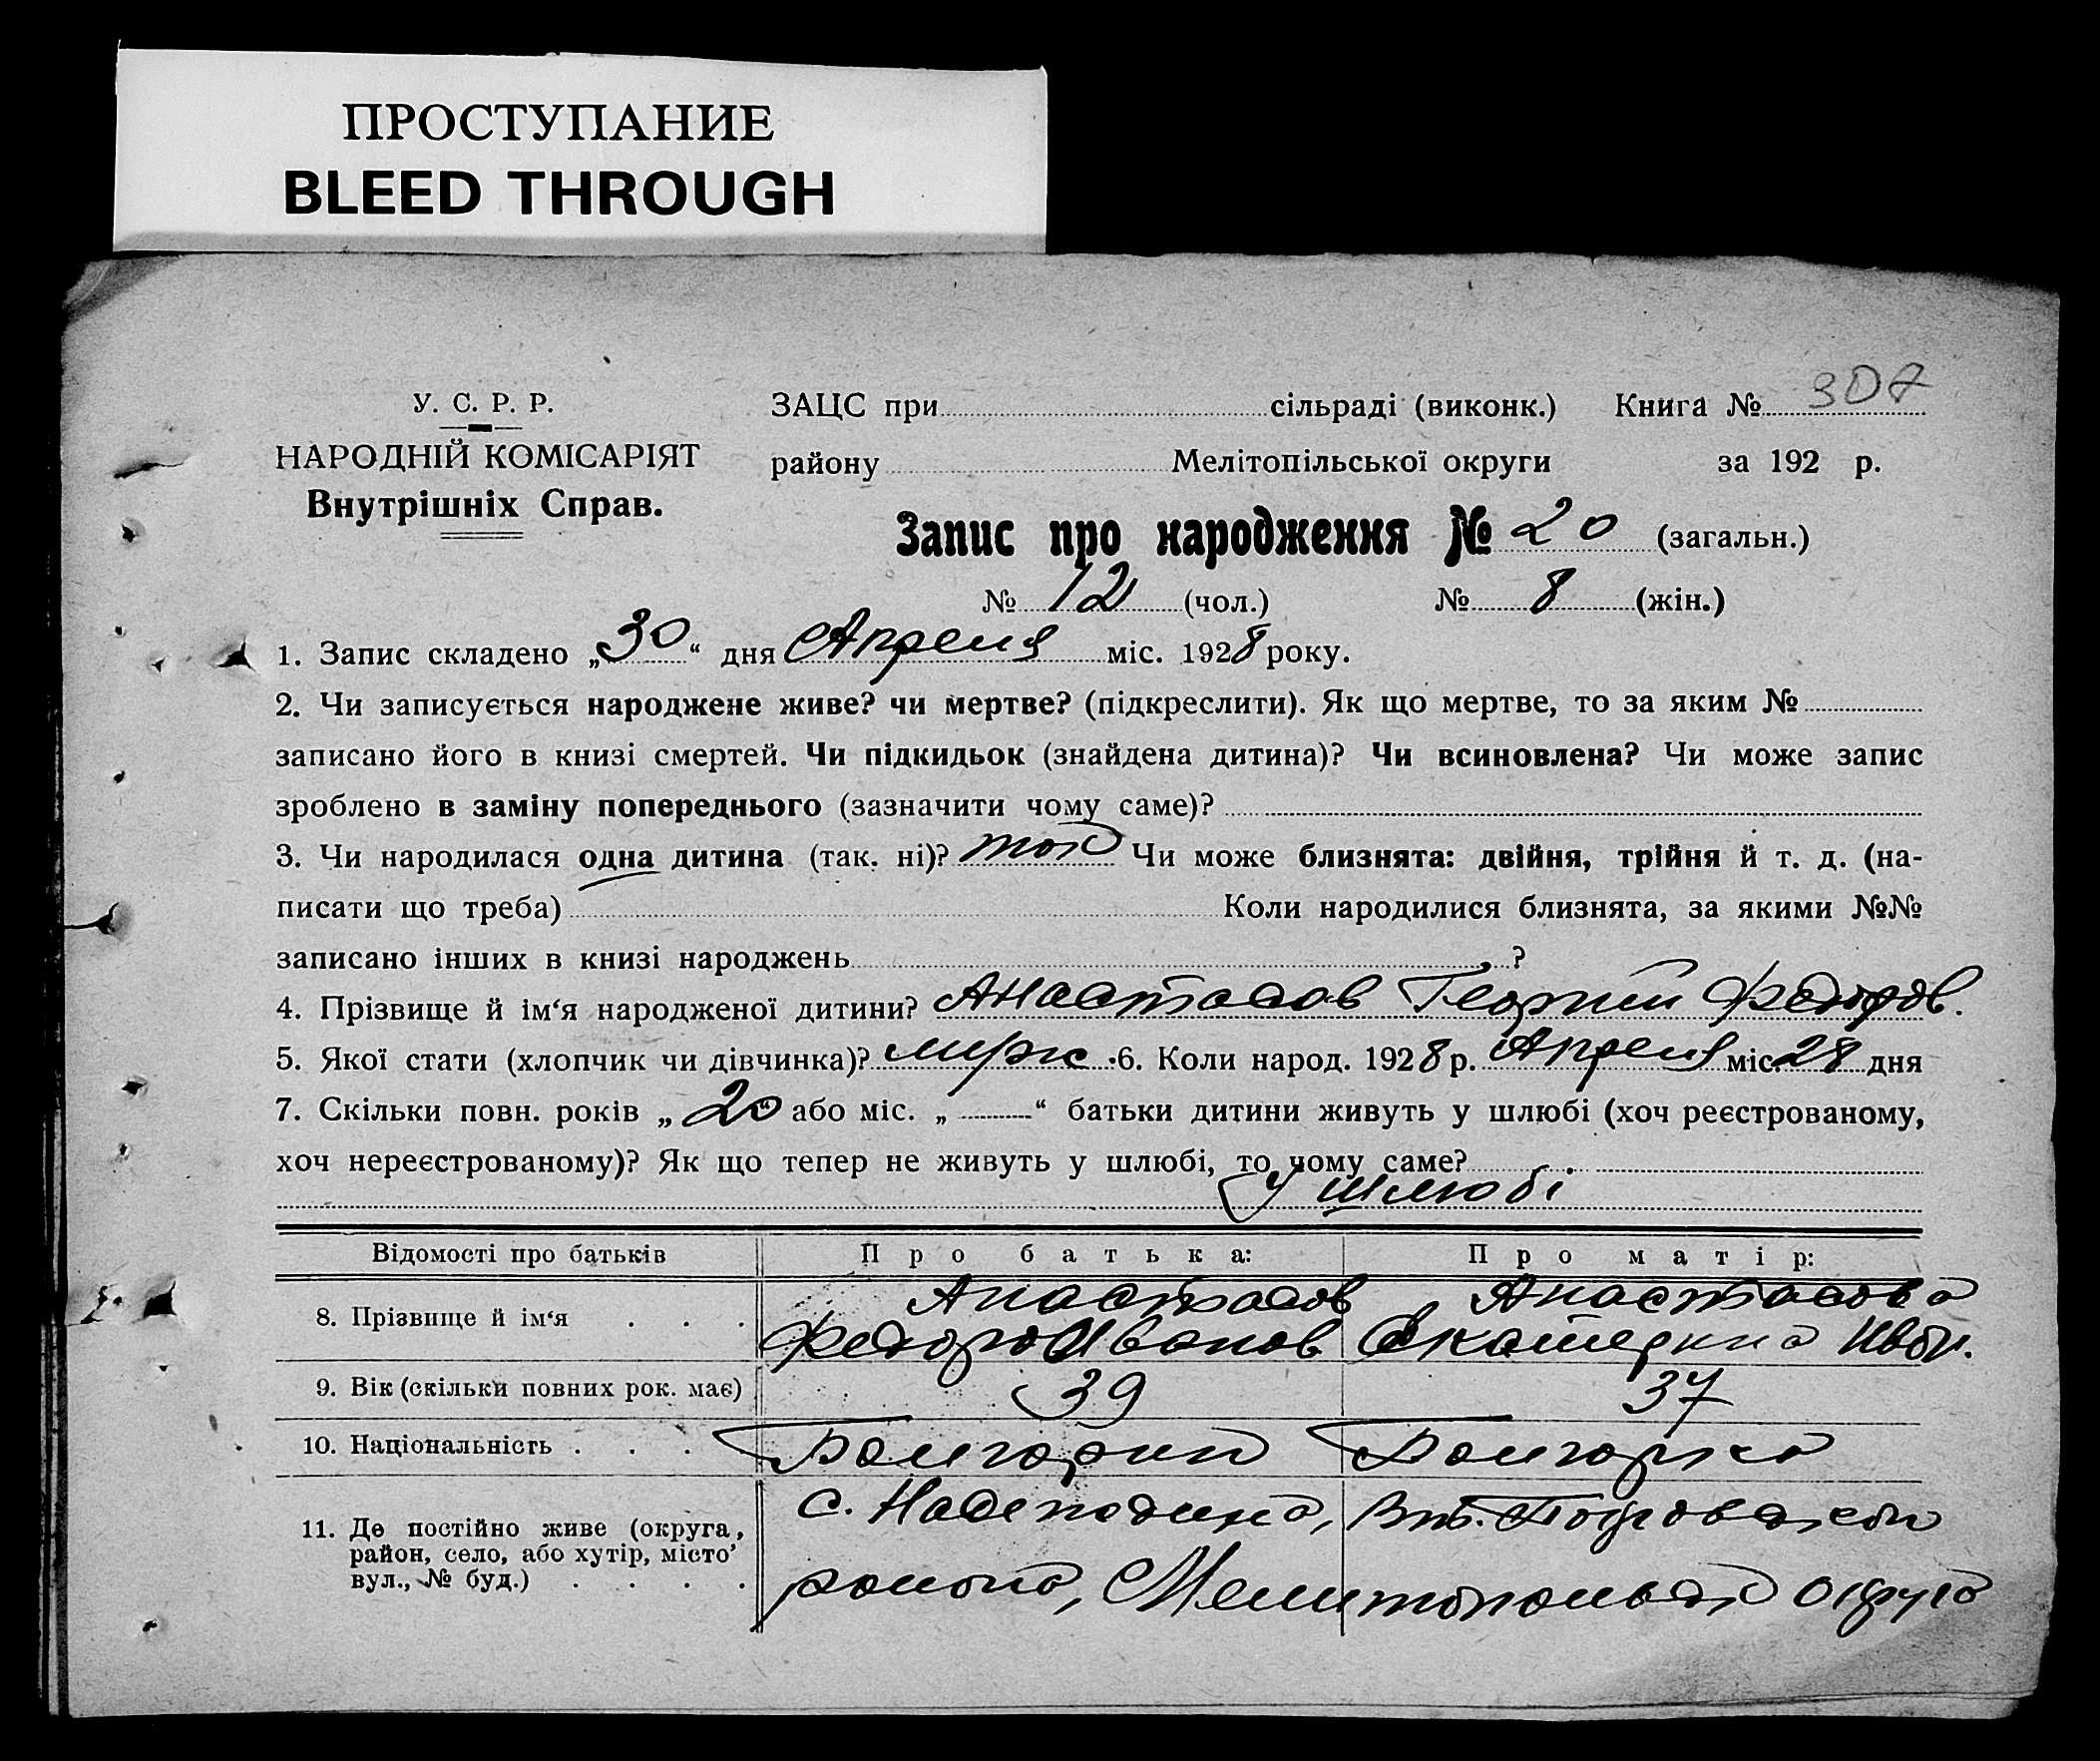 ПРОСТУПАНИЕ
BLEED THROUGH
У. С. Р. Р.
НАРОДНІЙ КОМІСАРІЯТ
Внутрішніх Справ.
ЗАЦС при сільраді (виконк.) Книга № 307
району Мелітопільської округи за 192 р.
Запис про народження № 20 (загальн.)
№ 12 (чол.) № 8 (жін.)
1. Запис складено „30“ дня Апреля міс. 1928 року.
2. Чи записується народжене живе? чи мертве? (підкреслити). Як що мертве, то за яким №
записано його в книзі смертей. Чи підкидьок (знайдена дитина)? Чи всиновлена? Чи може запис
зроблено в заміну попереднього (зазначити чому саме)?
3. Чи народилася одна дитина (так. ні)? Чи може близнята: двійня, трійня й т. д. (на-
писати що треба) Коли народилися близнята, за якими №№
записано інших в книзі народжень ?
4. Прізвище й ім‘я народженої дитини? Анастасов Георгий Федоров.
5. Якої стати (хлопчик чи дівчинка)? муж. 6. Коли народ. 1928 р. Апреля міс. 28 дня
7. Скільки повн. років „20 або міс. „ “ батьки дитини живуть у шлюбі (хоч реєстрованому,
хоч нереєстрованому)? Як що тепер не живуть у шлюбі, то чому саме?
У шлюбі
Відомості про батьків Про батька: Про матір:
8. Прізвище й ім‘я . . . Анастасов Анастасова
Федор Иванов Екатерина Иван.
9. Вік (скільки повних рок. має) 39 37
10. Національність . . . Болгарин Болгарка
11. Де постійно живе (округа,
район, село, або хутір, місто,
вул., № буд.) . . . .
с.
района, Мелитопольск округа